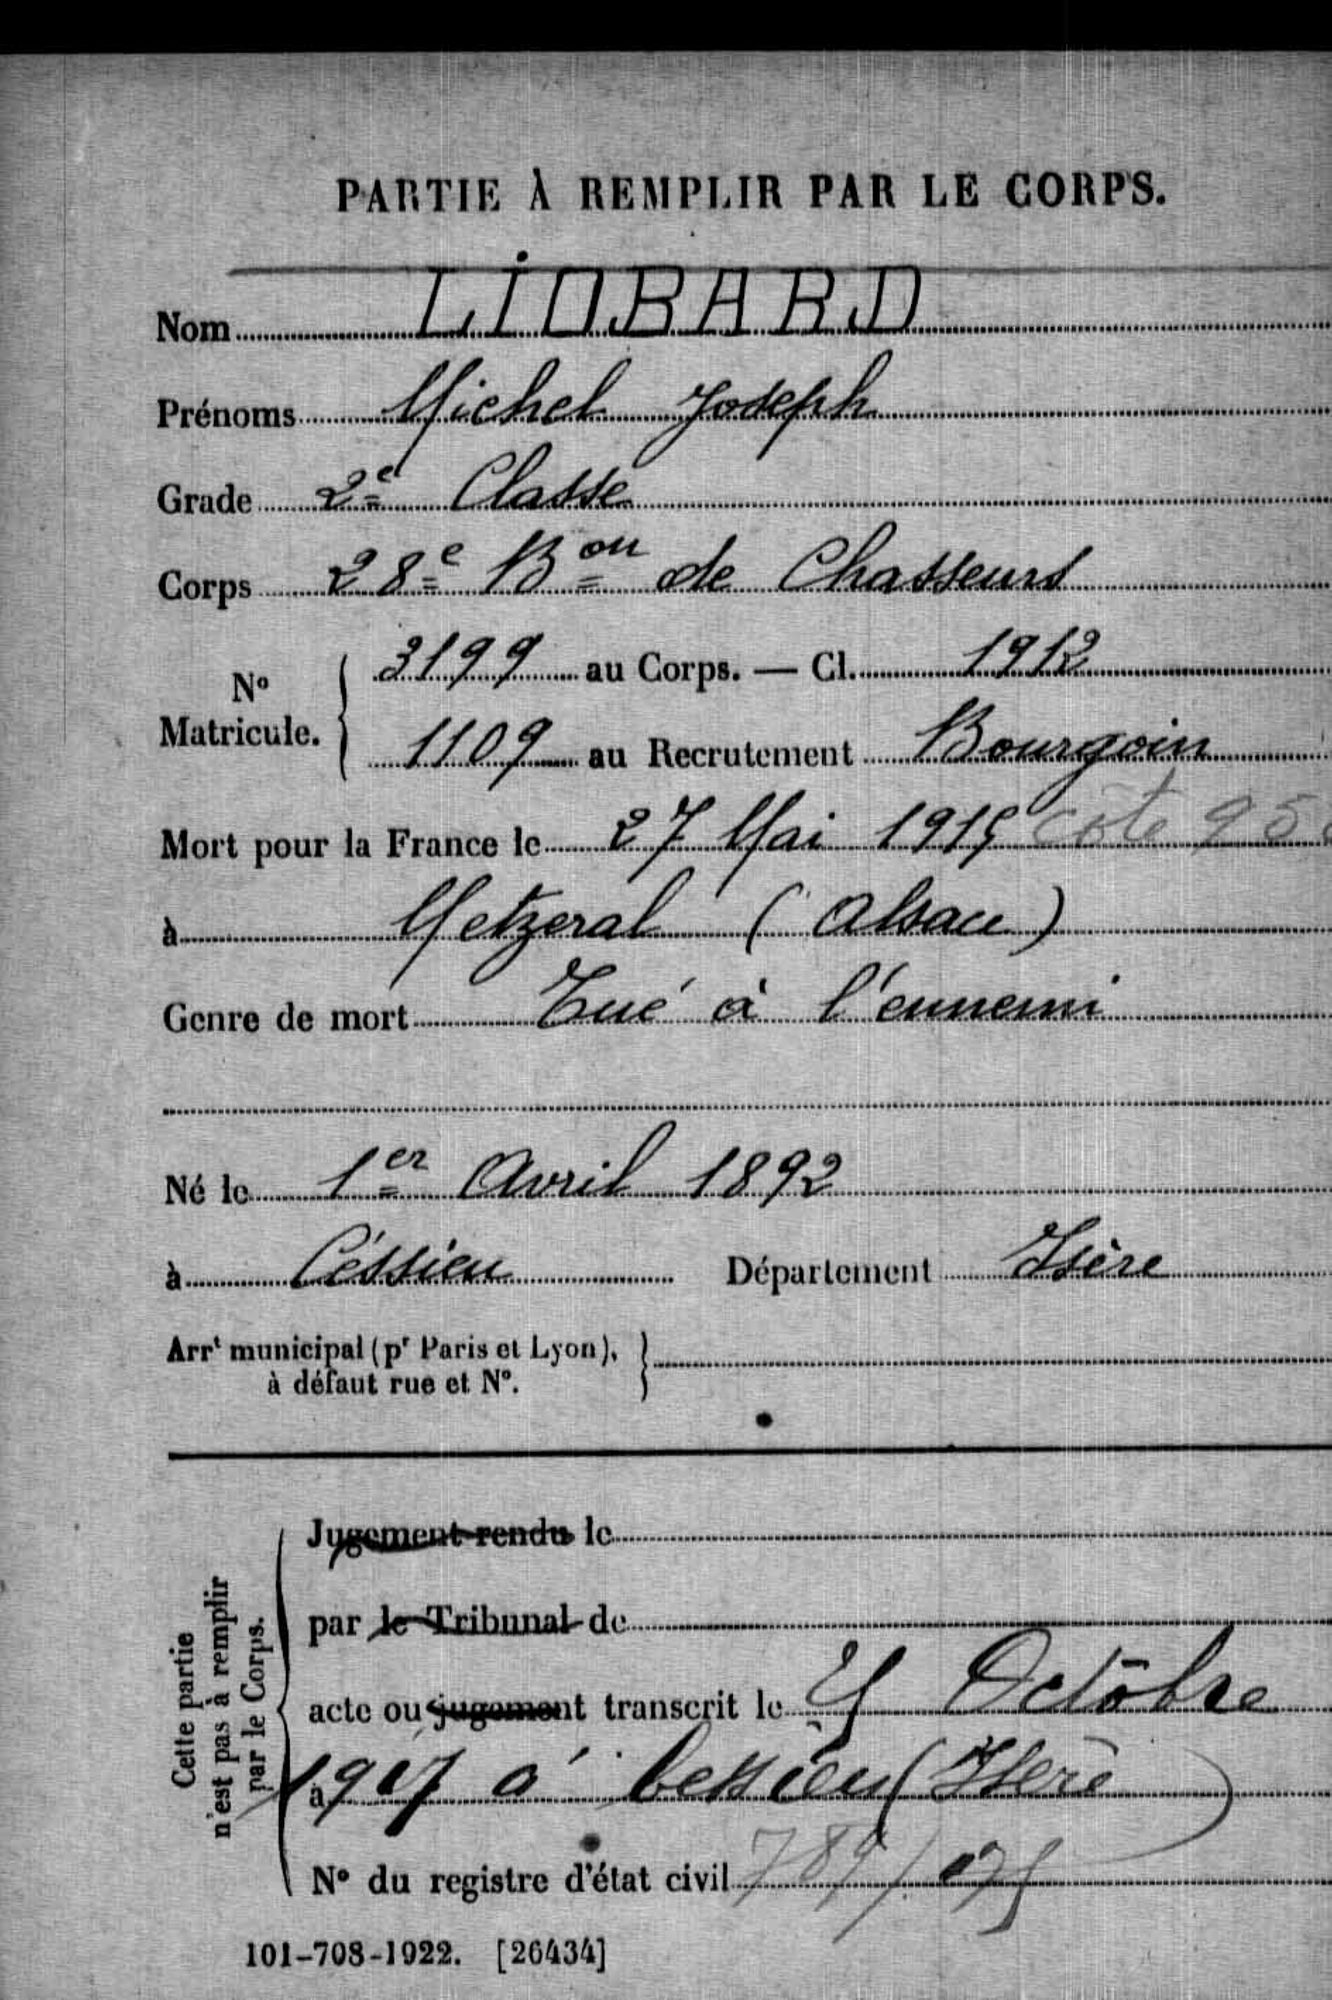 PARTIE À REMPLIR PAR LE CORPS.
Nom LIOBARD
Prénoms Michel Joseph
Grade 2e Classe
Corps 28e Bon de Chasseurs
No Matricule. 3199 au Corps. — Cl. 1912
1109 au Recrutement Bourgoin
Mort pour la France le 27 Mai 1915 Côte 95
à Metzeral (Alsace)
Genre de mort Tué à l'ennemi
Né le 1er Avril 1892
à Céssieu Département Isère
Arrt municipal (pr Paris et Lyon),
à défaut rue et No.
Cette partie n'est pas à remplir par le Corps.
Jugement rendu le
par le Tribunal de
acte ou jugement transcrit le Octobre
à 1917 à Cessieu (Isère)
No du registre d'état civil
101-708-1922. [26434]